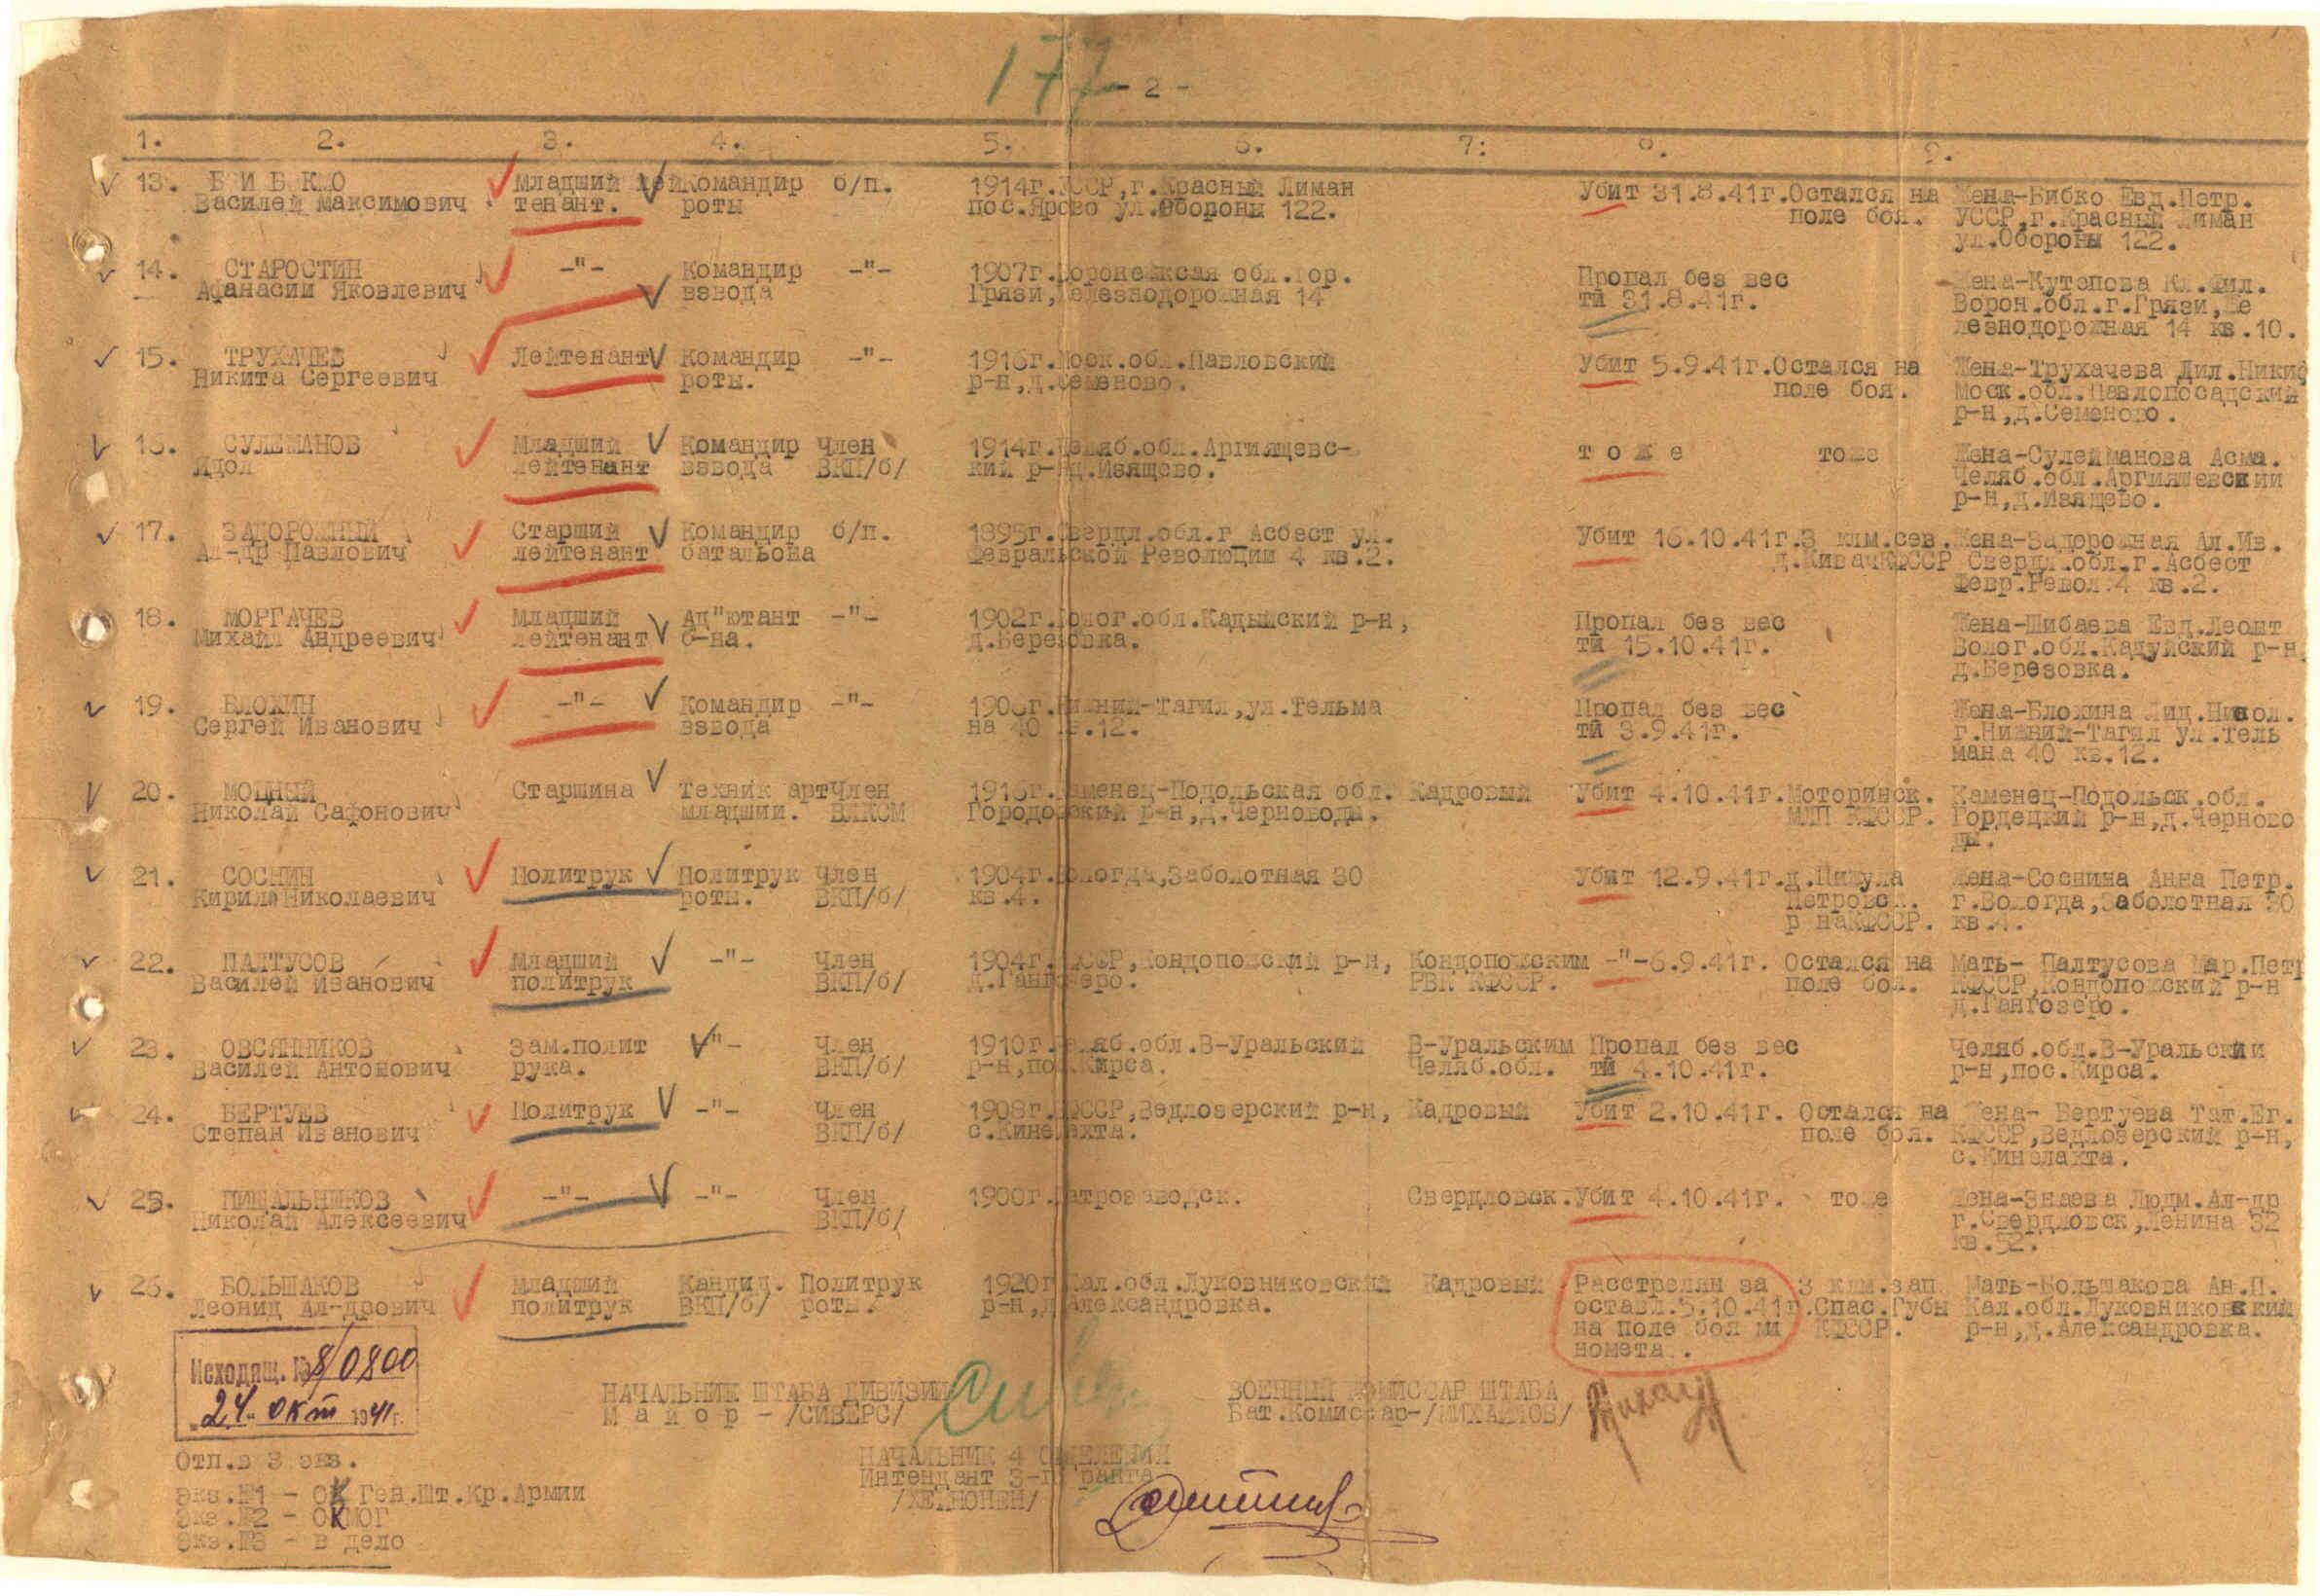 177 - 2 -
1. 2. 3. 4. 5. 6. 7: 8. 9.
13. Б И Б К О Младший лей Командир б/п. 1914г. УССР,г.Красный Лиман Убит 31.8.41г.Остался на Жена-Бибко Евд.Петр.
Василей Максимович тенант. роты пос.Ярово ул.Обороны 122. поле боя. УССР,г.Красный Лиман
ул.Обороны 122.
14. СТАРОСТИН -"- Командир -"- 1907г.Воронежская обл.гор. Пропал без вес Жена-Кутепова Кл.Фил.
Афанасий Яковлевич взвода Грязи,Железнодорожная 14 ти 31.8.41г. Ворон.обл.г.Грязи,Же
лезнодорожная 14 кв.10.
15. ТРУХАЧЕВ Лейтенант Командир -"- 1916г.Моск.обл.Павловский Убит 5.9.41г.Остался на Жена-Трухачева Дил.Никиф
Никита Сергеевич роты. р-н,д.Семеново. поле боя. Моск.обл.Павлопосадский
р-н,д.Семеново.
16. СУЛЕЙМАНОВ Младший Командир Член 1914г.Челяб.обл.Аргиящевс- т о ж е тоже Жена-Сулейманова Асма.
Ядол лейтенант взвода ВКП/б/ кий р- д.Изящево. Челяб.обл.Аргияшевский
р-н,д.Изящево.
17. ЗАДОРОЖНЫЙ Старший Командир б/п. 1895г.Свердл.обл.г Асбест ул. Убит 16.10.41г.3 клм.сев. Жена-Задорожная Ал.Ив.
Ал-др Павлович лейтенант батальона Февральской Революции 4 кв.2. д.КивачКФССР Свердл.обл.г.Асбест
Февр.Револ.4 кв.2.
18. МОРГАЧЕВ Младший Ад"ютант -"- 1902г.Волог.обл.Кадыйский р-н, Пропал без вес Жена-Шибаева Евд.Леонт
Михаил Андреевич лейтенант б-на. д.Березовка. ти 15.10.41г. Волог.обл.Кадуйский р-н
д.Березовка.
19. БЛОХИН -"- Командир -"- 1906г.Нижний-Тагил,ул.Тельма Пропал без вес Жена-Блохина Лид.Никол.
Сергей Иванович взвода на 40 кв.12. ти 3.9.41г. г.Нижний-Тагил ул.Тель
мана 40 кв.12.
20. МОЩНЫЙ Старшина Техник артЧлен 1916г.Каменец-Подольская обл. Кадровый Убит 4.10.41г.Моторинск. Каменец-Подольск.обл.
Николай Сафонович младший. ВЛКСМ Городокский р-н,д.Черноводы. МЛП КФССР. Гордецкий р-н,д.Черново
ды.
21. СОСНИН Политрук Политрук Член 1904г.Вологда,Заболотная 30 Убит 12.9.41г.д.Пижула Жена-Соснина Анна Петр.
Кирил Николаевич роты. ВКП/б/ кв.4. Петровск. г.Вологда,Заболотная 30
р наКФССР. кв.4.
22. ПАЛТУСОВ Младший -"- Член 1904г.КФССР,Кондопожский р-н, Кондопожским -"-6.9.41г. Остался на Мать- Палтусова Мар.Петр
Василей Иванович политрук ВКП/б/ д.Гангозеро. РВК КФССР. поле боя. КФССР,Кондопожский р-н
д.Гангозеро.
23. ОВСЯННИКОВ Зам.полит -"- Член 1910г.Челяб.обл.В-Уральский В-Уральским Пропал без вес Челяб.обл.В-Уральский
Василей Антонович рука. ВКП/б/ р-н,пос.Кирса. Челяб.обл. ти 4.10.41г. р-н,пос.Кирса.
24. БЕРТУЕВ Политрук -"- Член 1908г.КФССР,Ведлозерский р-н, Кадровый Убит 2.10.41г. Остался на Жена- Вертуева Тат.Ег.
Степан Иванович ВКП/б/ с.Кинелахта. поле боя. КФССР,Ведлозерский р-н,
с.Кинелахта.
25. ПИЩАЛЬНИКОВ -"- -"- Член 1900г.Петрозаводск. Свердловск.Убит 4.10.41г. тоже Жена-Знаева Людм.Ал-др
Николай Алексеевич ВКП/б/ г.Свердловск,Ленина 32
кв.52.
26. БОЛЬШАКОВ Младший Кандид. Политрук 1920г.Кал.обл.Луковниковский Кадровый Расстрелян за 3 клм.зап. Мать-Большакова Ан.П.
Леонид Ал-дрович политрук ВКП/б/ роты. р-н,д.Александровка. оставл.5.10.41г.Спас.Губы Кал.обл.Луковниковский
на поле боя ми КФССР. р-н,д.Александровка.
номета.
Исходящ. № 8/0800
"24" окт 1941г.
НАЧАЛЬНИК ШТАБА ДИВИЗИИ ВОЕННЫЙ КОМИССАР ШТАБА
М а й о р - /СИВЕРС/ Бат.Комиссар-/МИХАЙЛОВ/
НАЧАЛЬНИК 4 ОТДЕЛЕНИЯ
Интендант 3-го ранга
/ХЕЙНОНЕН/
Отп.в 3 экз.
Экз.№1 - ОК Ген.Шт.Кр.Армии
Экз.№2 - ОКМОГ
Экз.№3 - в дело